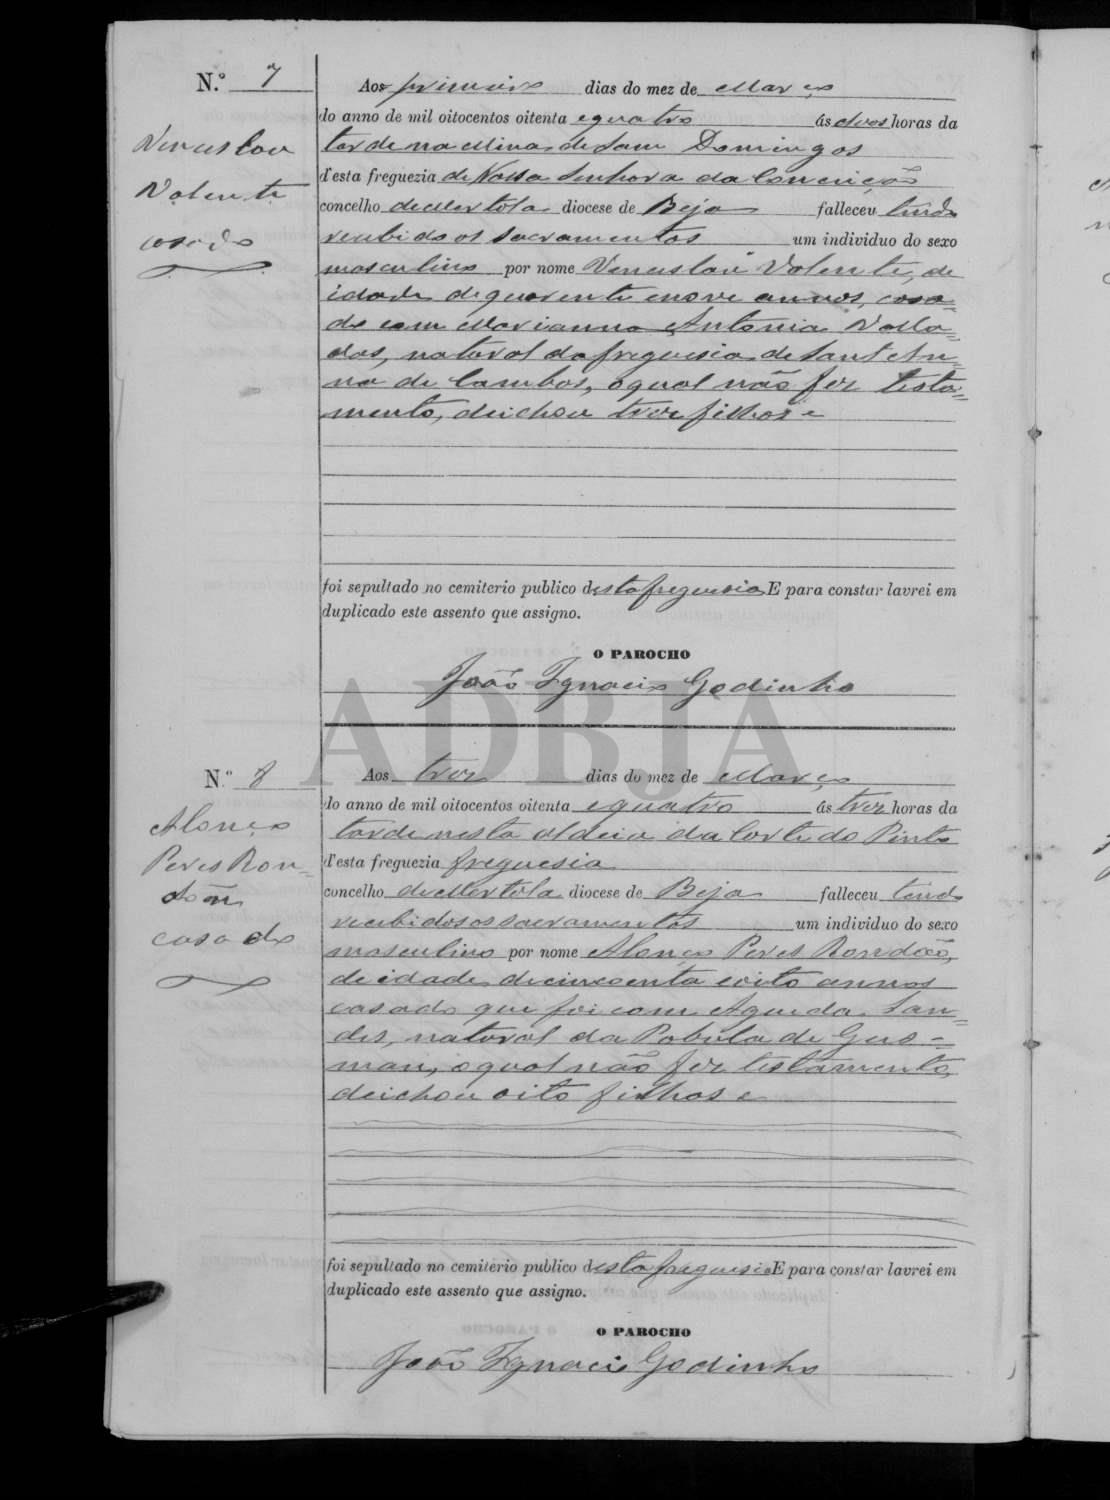 N.º 7
Venceslau
Valente
casado
Aos primeiro dias do mez de Março
do anno de mil oitocentos oitenta e quatro ás duas horas da
tarde na Mina de Sam Domingos
d'esta freguezia de Nossa Senhora da Conceição
concelho de Mertola diocese de Beja falleceu tendo
recebido os sacramentos um individuo do sexo
masculino por nome Venceslau Valente, de
idade de quarenta e nove annos, casa=
do com Marianna Antonia
natural da freguesia de Sant'An=
na de Cambas, o qual não fez testa=
mento, deichou trez filhos e
foi sepultado no cemiterio publico desta freguesia E para constar lavrei em
duplicado este assento que assigno.
O PAROCHO
João Ignacio Godinho
ADBJA
N.º 8
Alonço
Peres Ron=
dão
casado
Aos trez dias do mez de Março
do anno de mil oitocentos oitenta e quatro ás trez horas da
tarde nesta aldeia da Corte do Pinto
d'esta freguezia freguesia
concelho de Mertola diocese de Beja falleceu tendo
recebido os sacramentos um individuo do sexo
masculino por nome Alonço Peres Rondão,
de idade de cincoenta e oito annos
casado que foi com Agueda San=
des, natural da Pobula de Gus=
man, o qual não fez testamento,
deichou oito filhos e
foi sepultado no cemiterio publico desta freguesia E para constar lavrei em
duplicado este assento que assigno.
O PAROCHO
João Ignacio Godinho